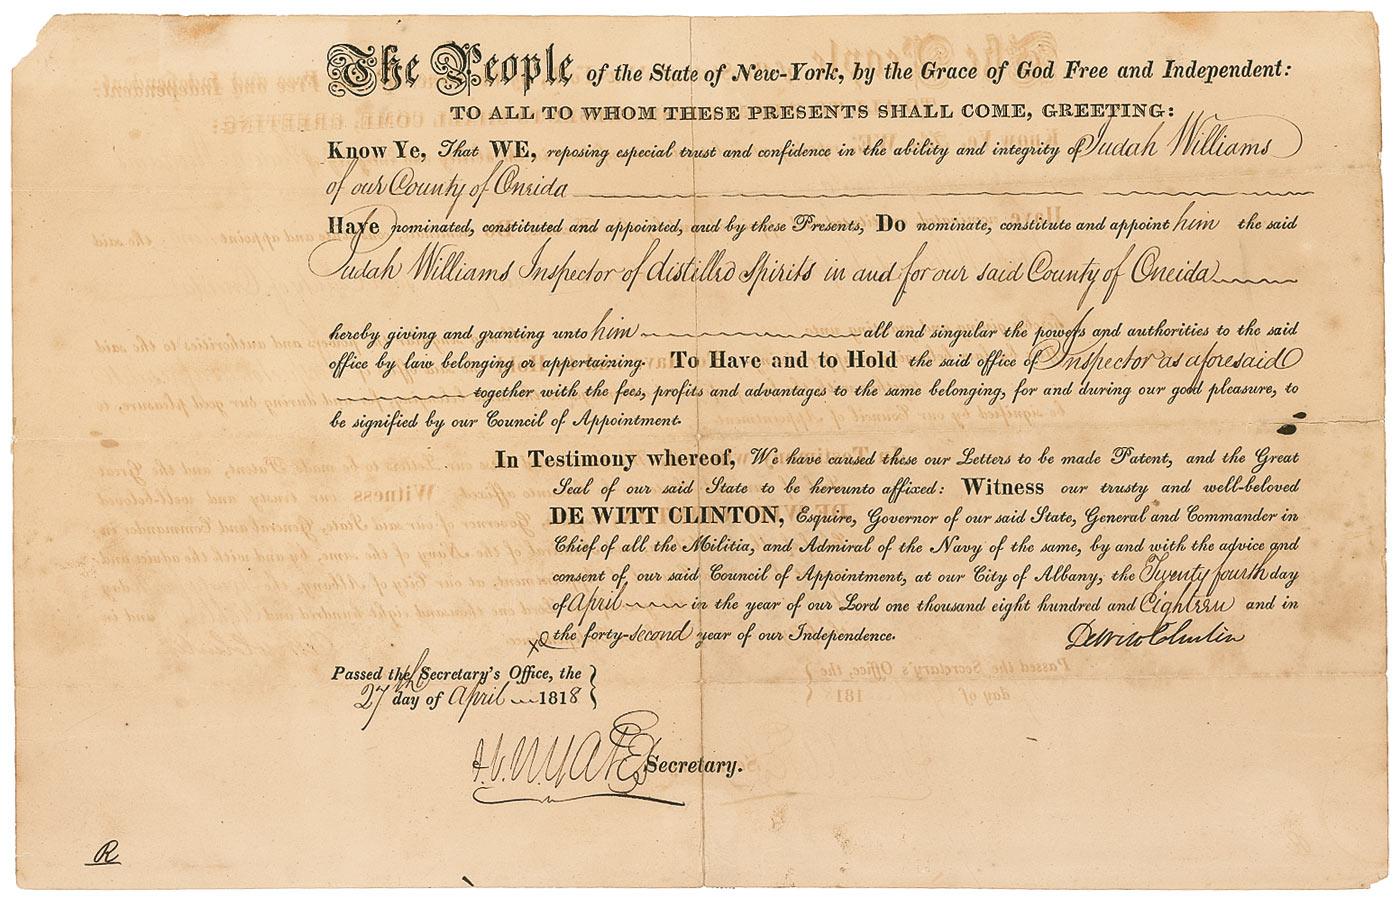 The People of the State of New-York, by the Grace of God Free and Independent:
TO ALL TO WHOM THESE PRESENTS SHALL COME, GREETING:
Know Ye, That WE, reposing especial trust and confidence in the ability and integrity of Judah Williams
of our County of Oneida
Have nominated, constituted and appointed, and by these Presents, Do nominate, constitute and appoint him the said
Judah Williams Inspector of distilled Spirits in and for our said County of Oneida
hereby giving and granting unto him all and singular the powers and authorities to the said
office by law belonging or appertaining. To Have and to Hold the said office of Inspector as aforesaid
together with the fees, profits and advantages to the same belonging, for and during our good pleasure, to
be signified by our Council of Appointment.
In Testimony whereof, We have caused these our Letters to be made Patent, and the Great
Seal of our said State to be hereunto affixed: Witness our trusty and well-beloved
DE WITT CLINTON, Esquire, Governor of our said State, General and Commander in
Chief of all the Militia, and Admiral of the Navy of the same, by and with the advice and
consent of, our said Council of Appointment, at our City of Albany, the Twenty fourth day
of April in the year of our Lord one thousand eight hundred and Eighteen and in
the forty-second year of our Independence.
DeWitt Clinton
Passed the Secretary's Office, the
27th day of April 1818
Yates Secretary.
R